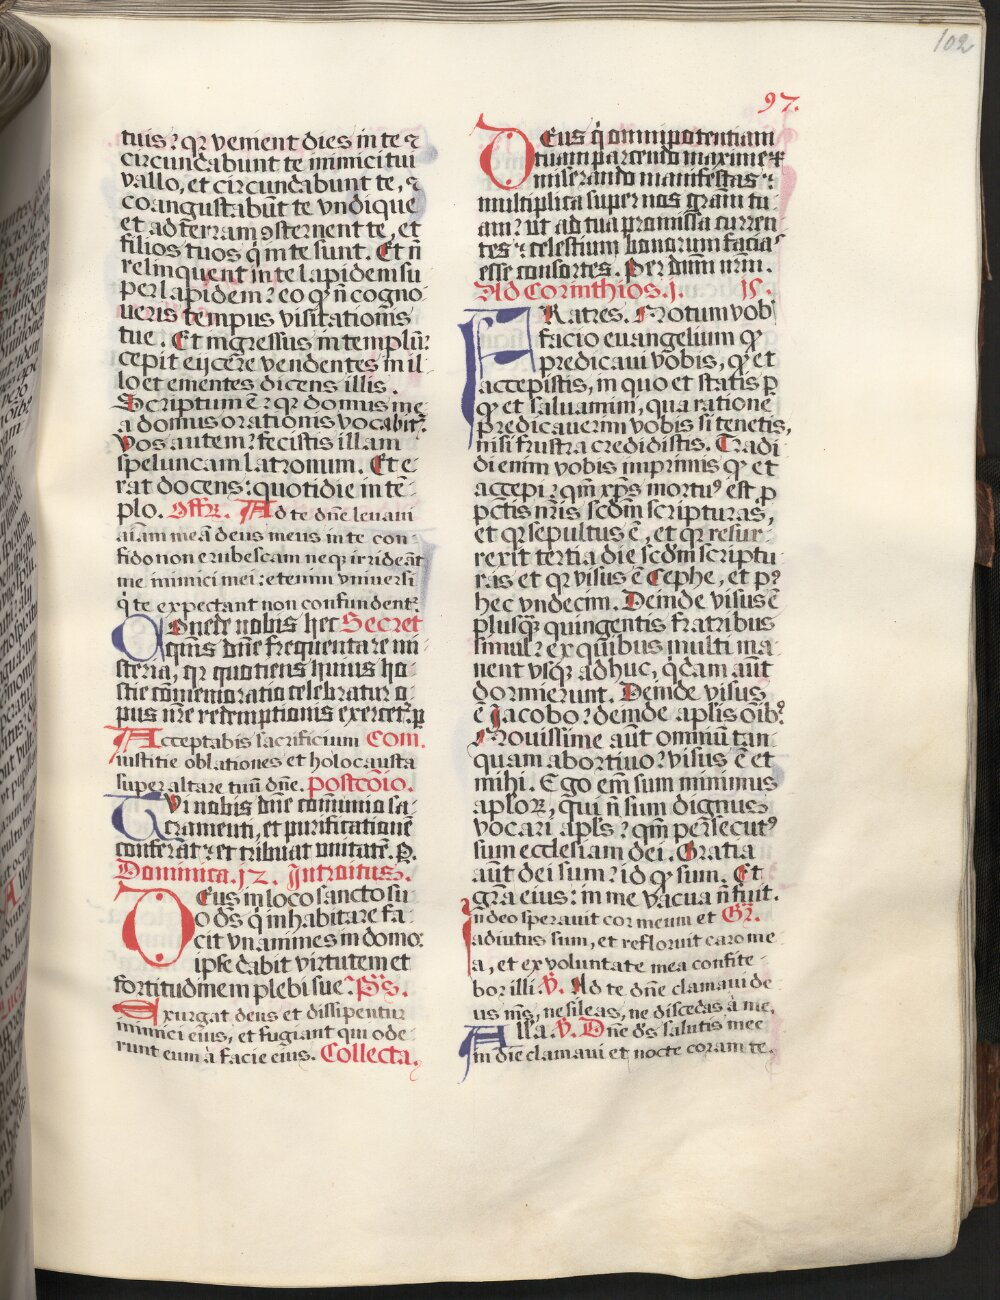 102
97.
tuis? qꝛ venient dies in te ⁊
circundabunt te inimici tui
vallo, et circundabunt te, ⁊
coangustabūt te vndique
et ad terram ꝯsternent te, et
filios tuos q̇ in te sunt. Et n̄
relinquent in te lapidem su
per lapidem? eo qꝙ n̄ cogno
ueris tempus visitationis
tue. Et ingressus in templū?
cepit eijcere vendentes in il
lo et ementes dicens illis.
Scriptum ē? qꝛ domus me
a domus orationis vocabitᷣ.
Vos autem? fecistis illam
speluncam latronum. Et e
rat docens: quotidie in tē
plo. Offꝝ. Ad te dn̄e leuaui
aīam meā deus meus in te con
fido non erubescam neqꝫ irrideāt
me inimici mei: etenim vniuersi
q̇ te expectant non confundentᷣ.
Onede nobis hec Secret
qūs dn̄e frequentare mi
steria, qꝛ quotiens huius ho
stie cōmemoratio celebratur o
pus nr̄e redemptionis exercetᷣ. ꝑ
Acceptabis sacrificium Com.
iustitie oblationes et holocausta
super altare tuū dn̄e. postcōio.
Tvi nobis dn̄e cōmunio sa
cramenti, et purificationē
conferat ⁊ et tribuat vnitatē. P.
Dominica. 12. Introitus.
Deus in loco sancto su
o ds̄ q̇ inhabitare fa
cit vnanimes in domo:
ipse dabit virtutem et
fortitudinem plebi sue. Ps.
Exurgat deus et dissipentur
inimici eius, et fugiant qui ode
runt eum à facie eius. Collecta.
Deus q̇ omnipotentiam
tuam parcendo maxime ⁊
miserando manifestas ⁊
multiplica super nos gram tu
am? ut ad tua promissa curren
tes ⁊ celestium bonorum facias
esse consortes. Per dūm nr̄m.
Ad Corinthios. j. 15.
FRatres. Notum vob
facio euangelium qꝙ
predicaui vobis, qꝙ et
accepistis, in quo et statis ꝑ
qꝙ et saluamini, qua ratione
predicauerim vobis si tenetis,
nisi frustra credidistis. Tradi
di enim vobis imprimis qꝙ et
accepi? qm̄ xp̄s mortuꝰ est ꝓ
pctīs nr̄is scd̄m scripturas,
et qꝛ sepultus ē, et qꝛ resur
rexit tertia die scd̄m scriptu
ras et qꝛ visus ē Cephe, et pꝰ
hec vndecim. Deinde visus ē
plusqꝫ quingentis fratribus
simul? ex quibus multi ma
nent vsqꝫ adhuc, q̇dam aūt
dormierunt. Deinde visus
ē Jacobo? deinde aplīs oīb?
Nouissime aūt omniū tan
quam abortiuo? visus ē et
mihi. Ego em̄ sum minimus
aploꝝ, qui n̄ sum dignus
vocari apls̄? qm̄ persecutꝰ
sum ecclesiam dei. Gratia
aūt dei sum? id qꝙ sum. Et
grā eius: in me vacua n̄ fuit.
In deo sperauit cor meum et Gꝛ.
adiutus sum, et refloruit caro me
a, et ex voluntate mea confite
bor illi. V. Ad te dn̄e clamaui de
us ms̄, ne sileas, ne discedas à me.
Alla. V. Dn̄e ds̄ salutis mee
in die clamaui et nocte coram te.